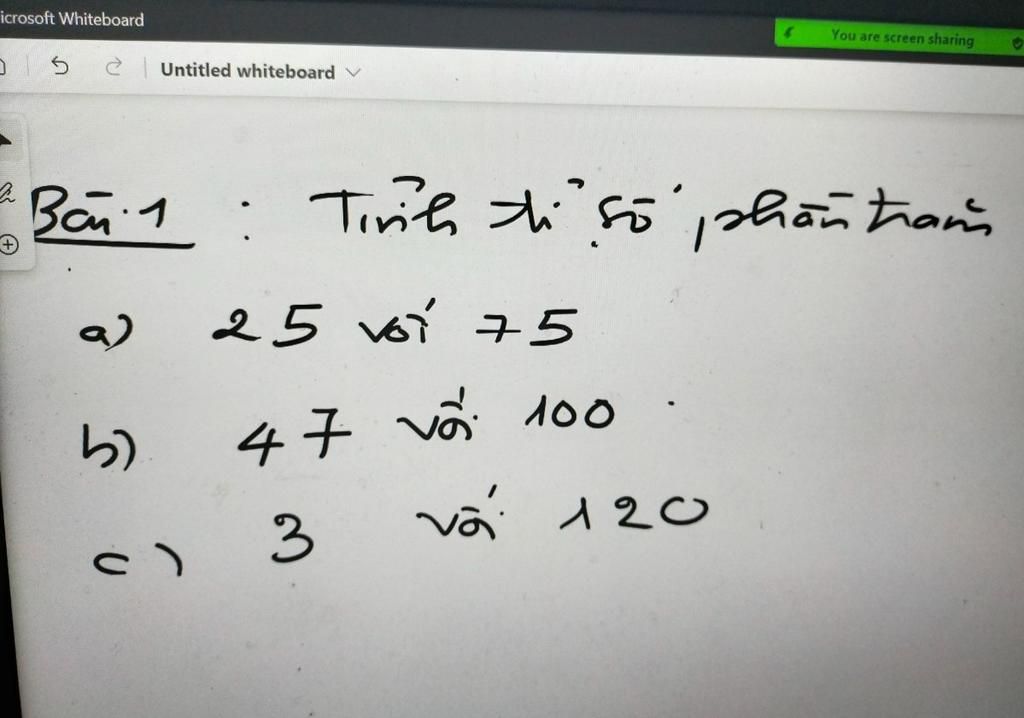 icrosoft Whiteboard
You are screen sharing
Untitled whiteboard
Bài 1 : Tính tỉ số phần trăm
a) 25 với 75
b) 47 với 100
c) 3 với 120